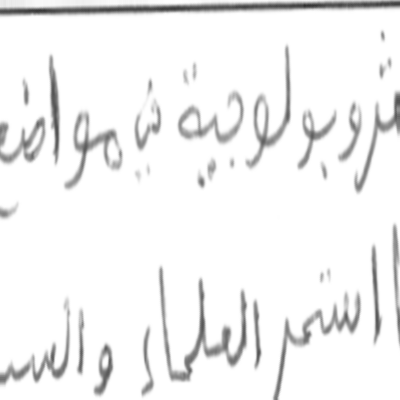 ثروبولوجية في مواضع
استمر العلماء والس